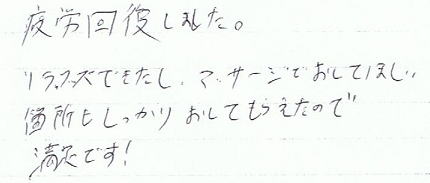 疲労回復しました。
リラックスできたし、マッサージでおしてほしい
箇所もしっかりおしてもらえたので
満足です!